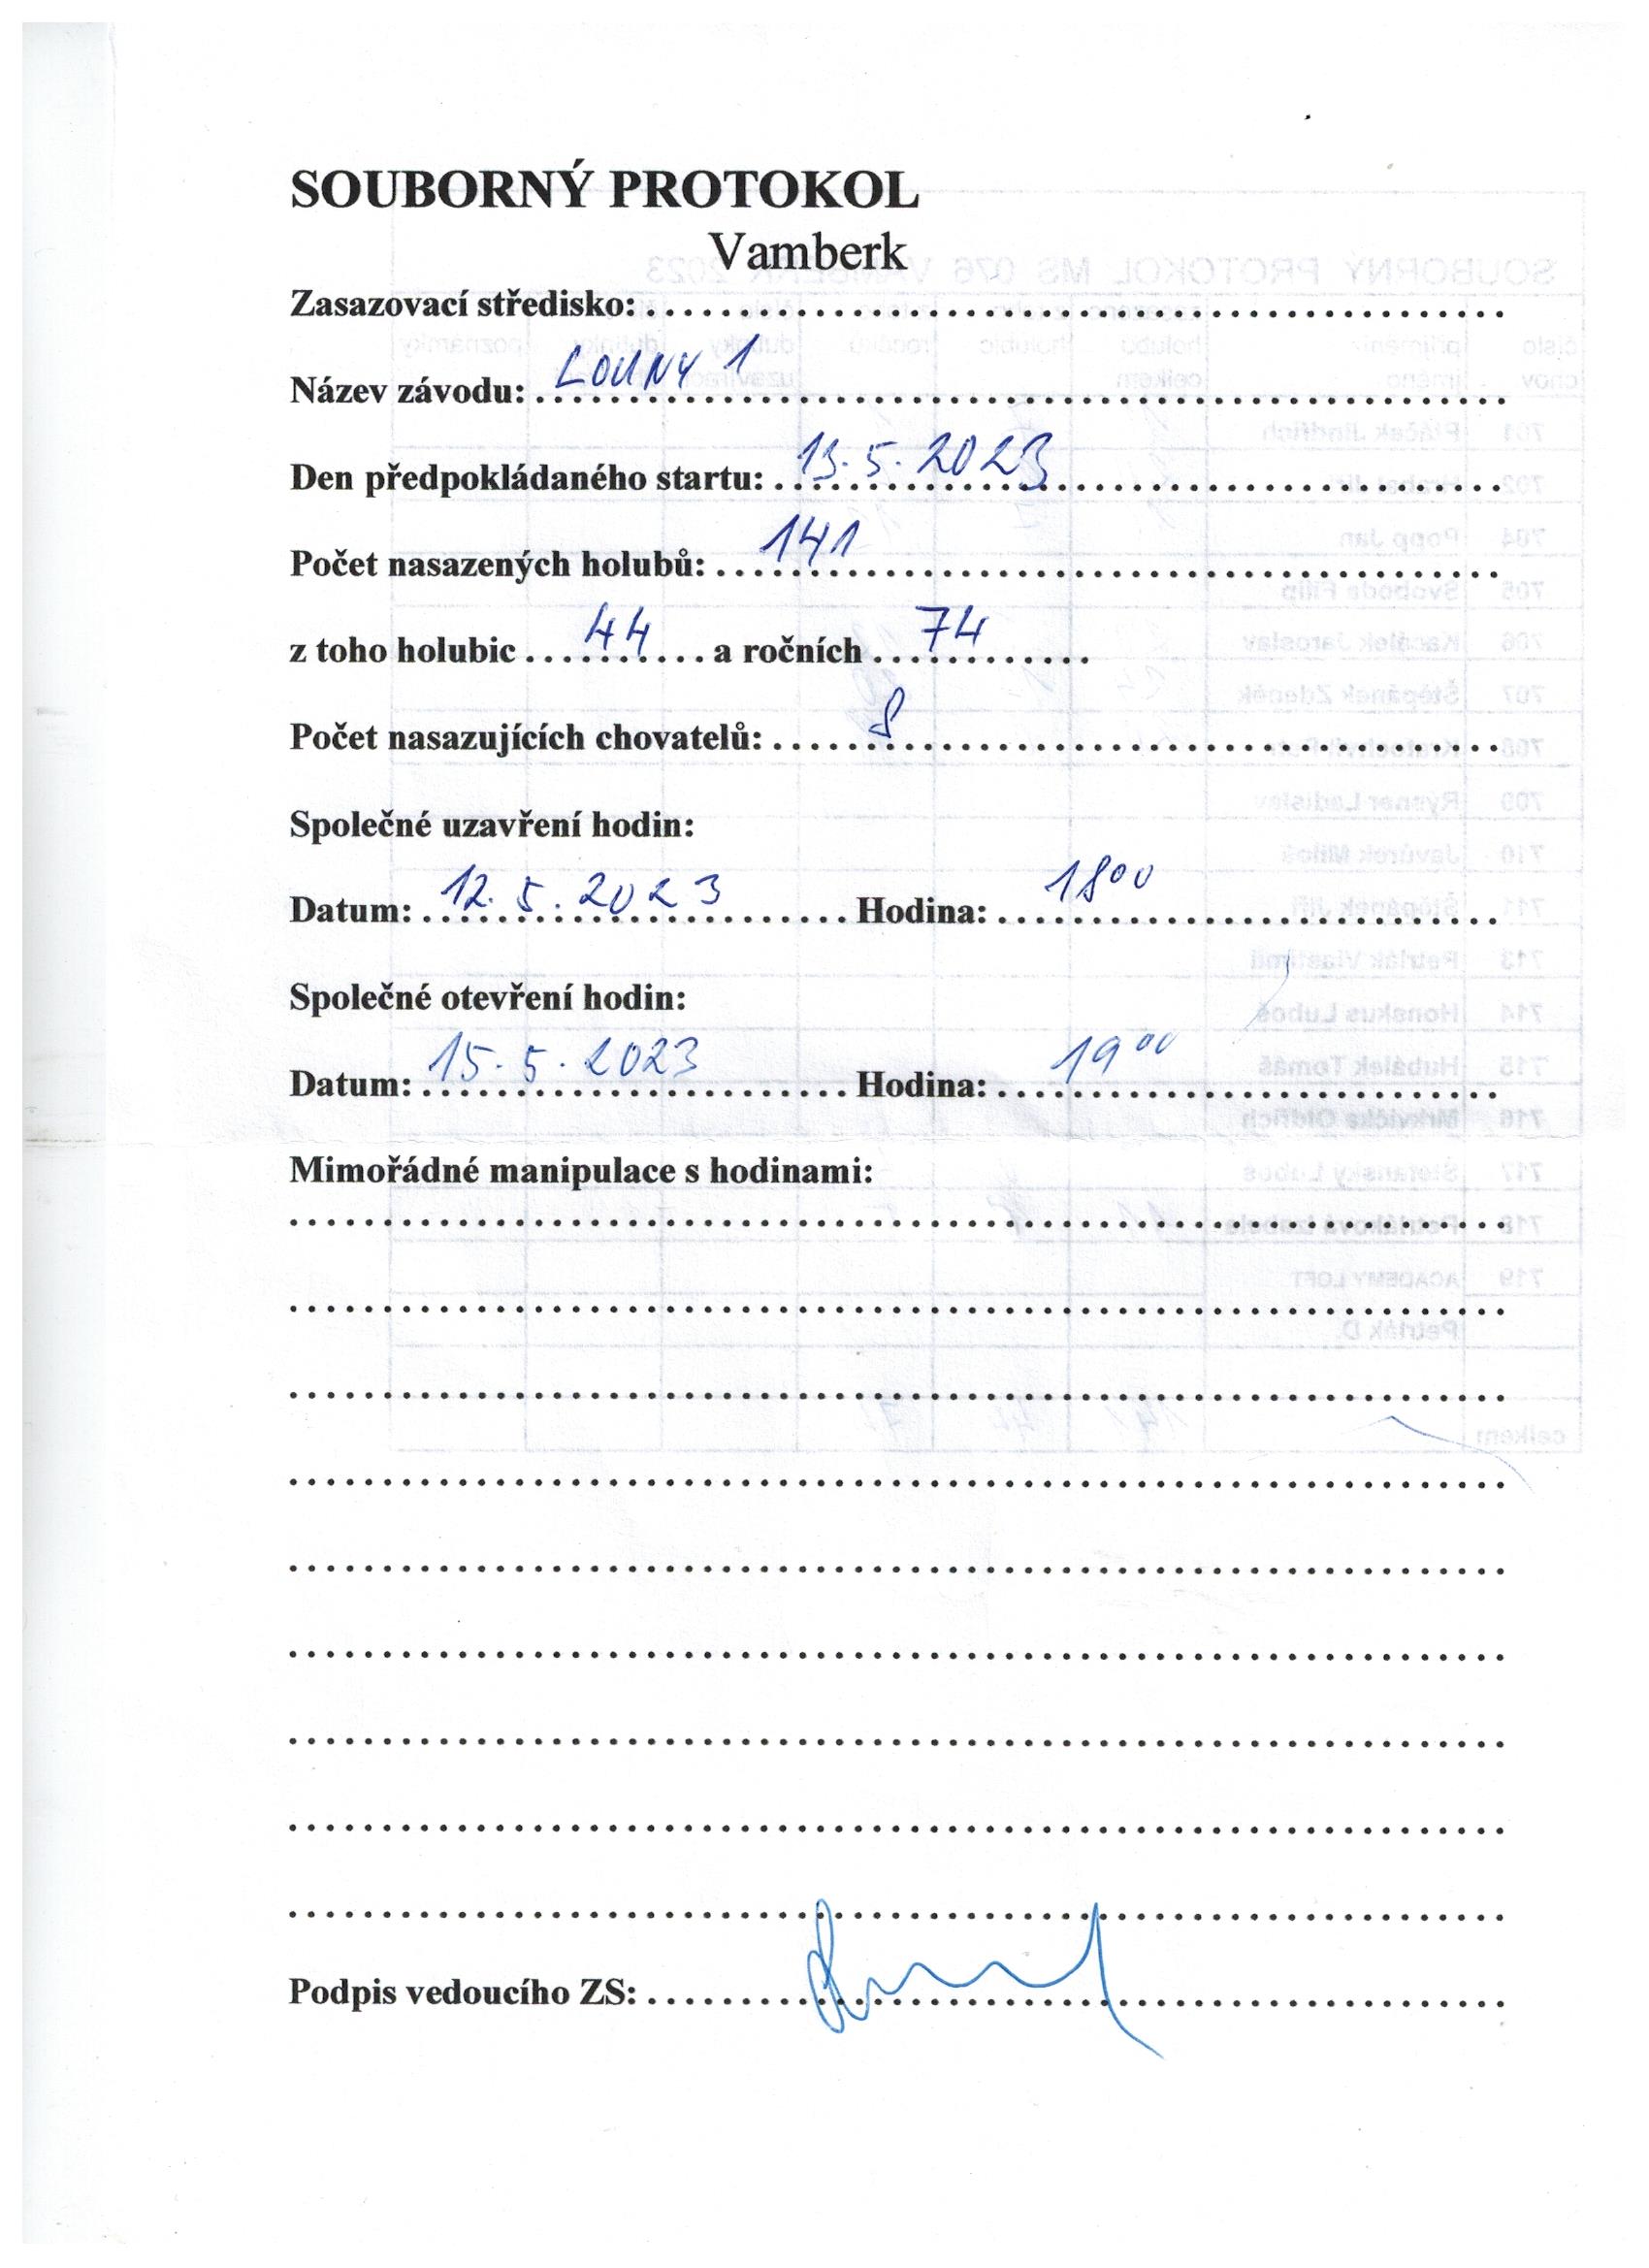 SOUBORNÝ PROTOKOL
Vamberk
Zasazovací středisko:
Název závodu: LOUNY 1
Den předpokládaného startu: 13.5.2023
Počet nasazených holubů: 141
z toho holubic 44 a ročních 74
Počet nasazujících chovatelů: 8
Společné uzavření hodin:
Datum: 12.5.2023 Hodina: 18⁰⁰
Společné otevření hodin:
Datum: 15.5.2023 Hodina: 19⁰⁰
Mimořádné manipulace s hodinami:
Podpis vedoucího ZS: